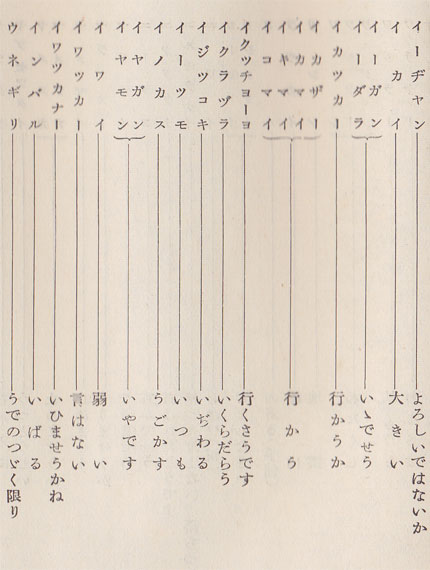 イーヂャン よろしいではないか
イカイ 大きい
イーガン
イーダラ いゝでせう
イカツカー 行かうか
イカザー
イカマイ
イキマイ
イコマイ 行かう
イクツチョーヨ 行くさうです
イクラヅラ いくらだらう
イジツコキ いぢわる
イーツモ いつも
イノカス うごかす
イヤガン
イヤモン いやです
イワイ 弱い
イワツカー 言はない
イワツカナー いひませうかね
インバル いばる
ウネギリ うでのつゞく限り